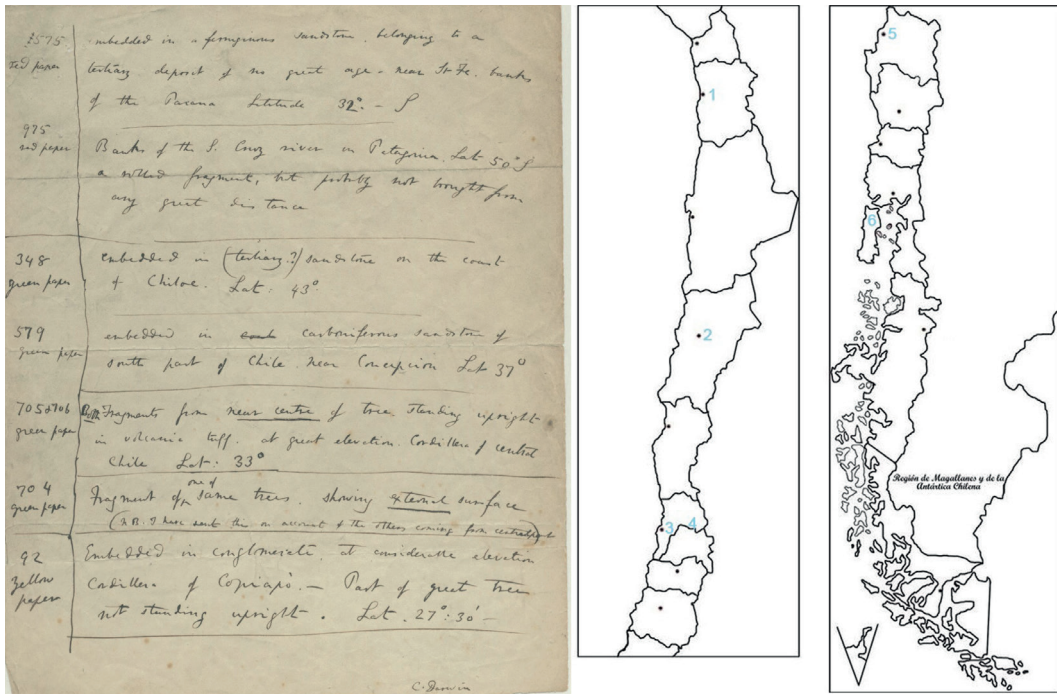 1575
red paper
embedded in a ferruginous sandstone belonging to a
tertiary deposit of no great age - near St Fe. banks
of the Parana Latitude 32°. - S
975
red paper
Banks of the S. Cruz river in Patagonia. Lat 50° S
a rolled fragment, but probably not brought from
any great distance
348
green paper
embedded in (tertiary?) sandstone on the coast
of Chiloe. Lat: 43°
579
green paper
embedded in carboniferous sandstone of
south part of Chile. near Concepcion Lat 37°
705 & 706
green paper
Fragments from near centre of tree. standing upright
in volcanic tuff. at great elevation. Cordillera of central
Chile Lat: 33°
704
green paper
Fragment of one of same trees. showing external surface
(N.B. I have sent this on account of the others coming from central
92
yellow
paper
Embedded in conglomerate. at considerable elevation
Cordillera of Copiapò. - Part of great trees
not standing upright. Lat. 27°: 30' -
C. Darwin
1
2
3 4
5
6
Región de Magallanes y de la
Antártica Chilena